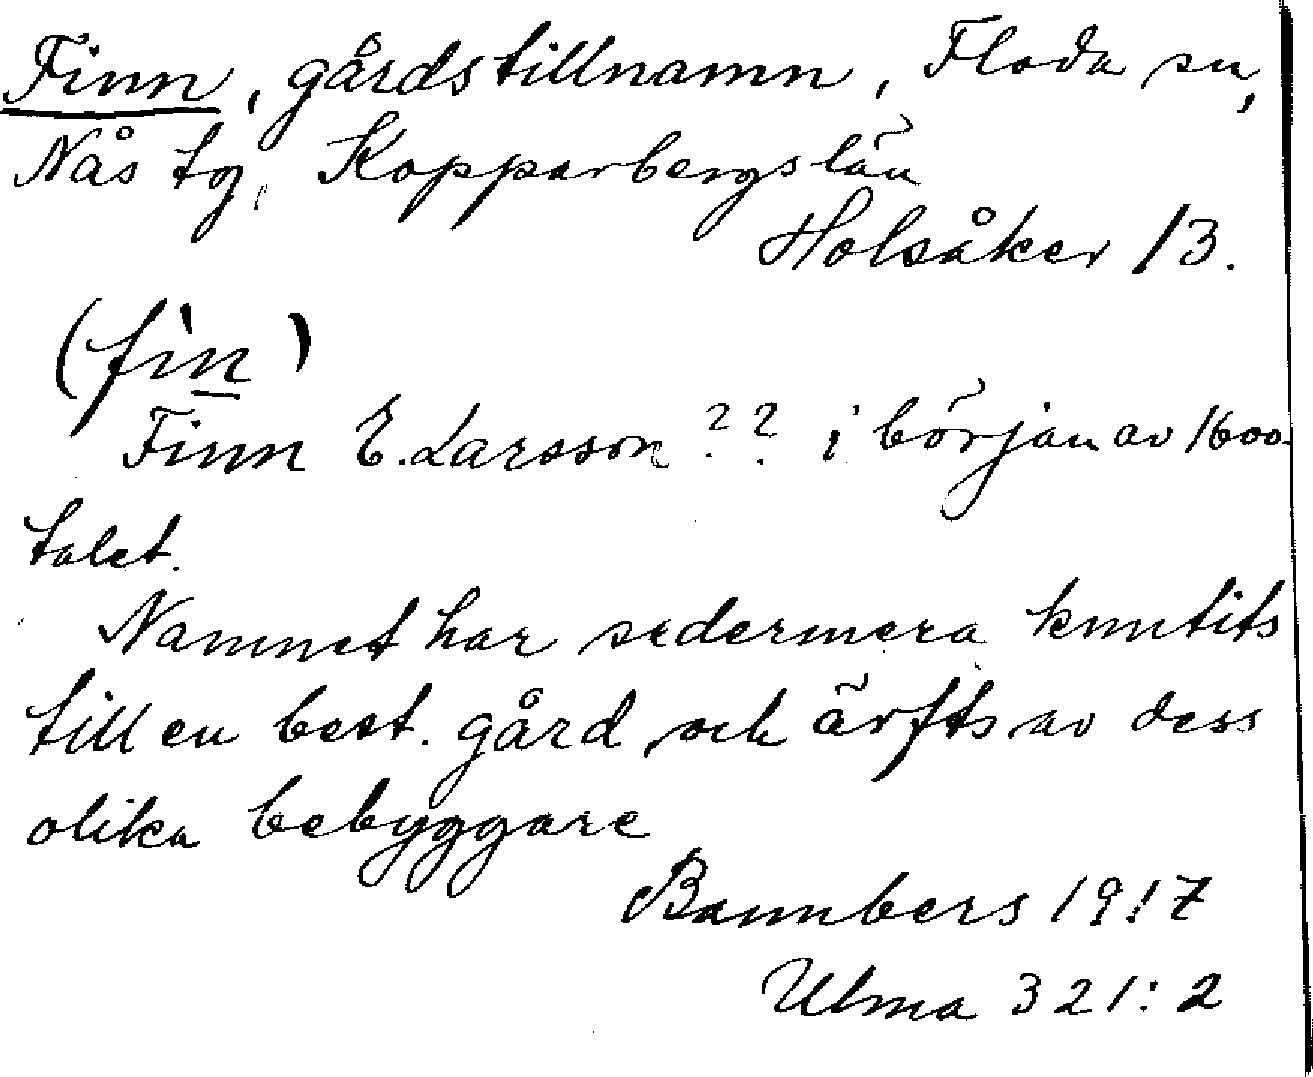 Finn, gårdstillnamn, Floda sn,
Nås tg, Kopparbergs län
Holsåker 13.
(fìn)
Finn E. Larsson ?? i början av 1600-
talet.
Namnet har sedermera knutits
till en best. gård och ärfts av dess
olika bebyggare
Bannbers 1917
Ulma 321:2